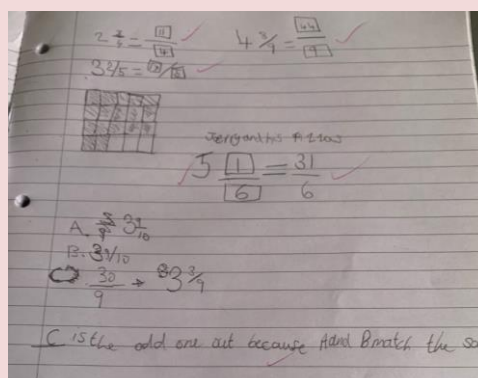 2 3/4 = 11/4
4 8/9 = 44/9
3 2/5 = 17/5
5 1/6 = 31/6
A. 3 9/10
B. 39/10
C 30/9 → 3 3/9
C is the odd one out because A and B match the